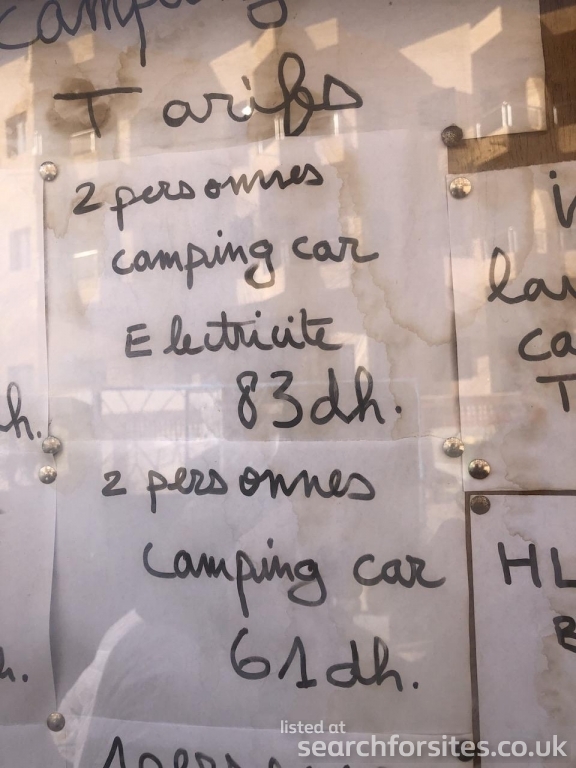 Camping
Tarifs
2 personnes
camping car
Electricite
83dh.
2 personnes
Camping car
61dh.
h.
h.
HL
listed at
searchforsites.co.uk